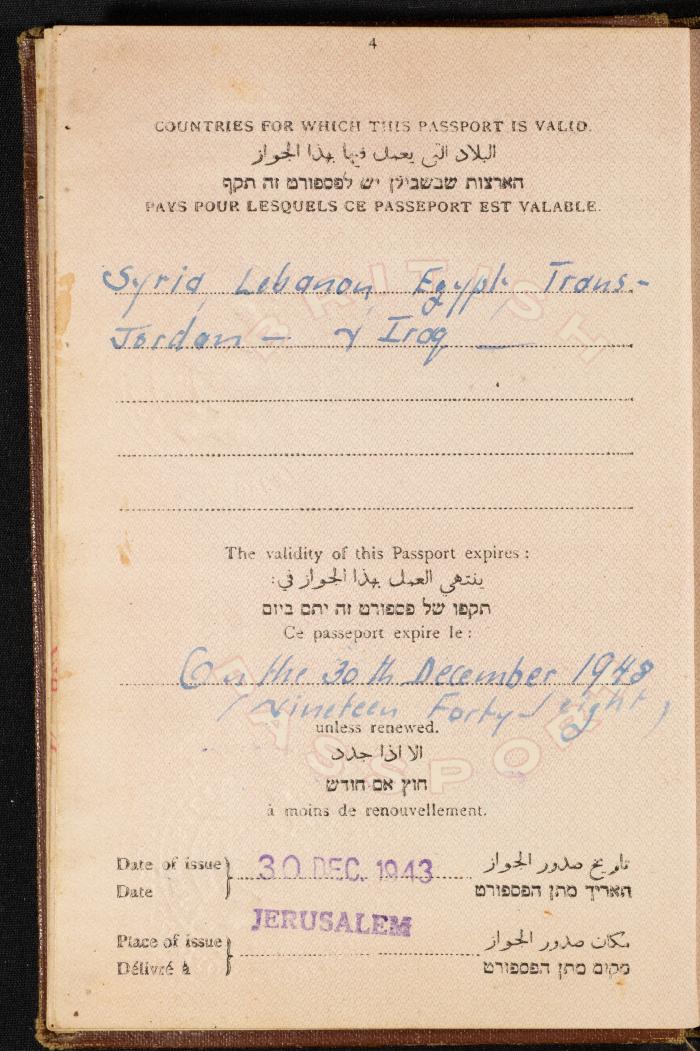 4
COUNTRIES FOR WHICH THIS PASSPORT IS VALID.
البلاد التي يعمل فيها بهذا الجواز
הארצות שבשבילן יש לפספורט זה תקף
PAYS POUR LESQUELS CE PASSEPORT EST VALABLE.
BRITISH
Syria, Lebanon, Egypt, Trans-
Jordan — & Iraq —
The validity of this Passport expires :
ينتهي العمل بهذا الجواز في:
תקפו של פספורט זה יתם ביום
Ce passeport expire le :
On the 30th December 1948
(Nineteen Forty-eight)
PASSPORT
unless renewed.
الا اذا جدد
חוץ אם חודש
à moins de renouvellement.
Date of issue } 30 DEC. 1943 تاريخ صدور الجواز
Date התאריך מתן הפספורט
JERUSALEM
Place of issue } مكان صدور الجواز
Délivré à מקום מתן הפספורט